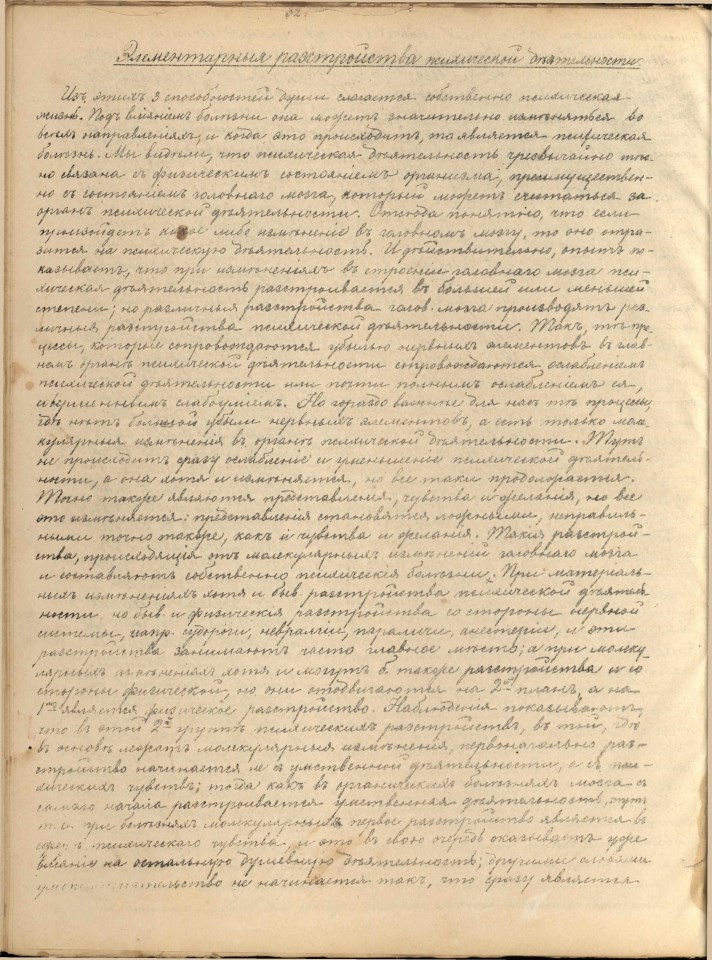 52
Элементарныя разстройства психической дѣятельности.
Изъ этихъ 3 способностей души слагается собственно психическая
жизнь. Подъ вліяніемъ болѣзни она можетъ значительно измѣняться во
всѣхъ направленіяхъ, и когда это происходитъ, то является психическая
болѣзнь. Мы видѣли, что психическая дѣятельность чрезвычайно тѣс-
но связана съ физическимъ состояніемъ организма, преимуществен-
но съ состояніемъ головнаго мозга, который можетъ считаться за
органъ психической дѣятельности. Отсюда понятно, что если
произойдетъ какое либо измѣненіе въ головномъ мозгу, то оно отра-
зится на психическую дѣятельность. И дѣйствительно, опытъ по-
казываетъ, что при измѣненіяхъ въ строеніе головнаго мозга пси-
хическая дѣятельность разстроивается въ большей или меньшей
степени; но различныя разстройства голов. мозга производятъ раз-
личныя разстройства психической дѣятельности. Такъ, тѣ про-
цессы, которые сопровождаются убылью нервныхъ элементовъ въ глав-
номъ органѣ психической дѣятельности сопровождаются ослабленіемъ
психической дѣятельности или почти полнымъ ослабленіемъ ея,
совершеннымъ слабоуміемъ. Но гораздо важнѣе для насъ тѣ процессы,
гдѣ нѣтъ большой убыли нервныхъ элементовъ, а есть только моле-
кулярныя измѣненія въ органѣ психической дѣятельности. Тутъ
не происходитъ сразу ослабленіе и уменьшеніе психической дѣятель-
ности, а она хотя и измѣняется, но все таки продолжается.
Точно также являются представленія, чувства и желанія, но все
это измѣняется: представленія становятся ложными, неправиль-
ными точно также, какъ и чувства и желанія. Такія разстрой-
ства, происходящія отъ молекулярныхъ измѣненій головнаго мозга
и составляютъ собственно психическія болѣзни. При матеріаль-
ныхъ измѣненіяхъ хотя и быв. разстройства психической дѣятель
ности, но быв. и физическія разстройства со стороны нервной
системы, напр. судороги, невралгіи, параличи, анестезіи, и эти
разстройства занимаютъ часто главное мѣсто; а при молеку-
лярныхъ измѣненіяхъ хотя и могутъ б. также разстройства и со
стороны физической, но они отодвигаются на 2й планъ, а на
является разстройство. Наблюденія показываютъ,
что въ этой 2й группѣ психическихъ разстройствъ, въ той, гдѣ
въ основѣ лежатъ молекулярныя измѣненія, первоначально раз-
стройство начинается не съ умственной дѣятельности, а съ пси-
хическихъ чувствъ; тогда какъ въ органическихъ болѣзняхъ мозга съ
самаго начала разстроивается умственная дѣятельность,
т. е. при болѣзняхъ молекулярныхъ первое разстройство является въ
сферѣ психическаго чувства, и это въ свою очередь оказываетъ уже
вліяніе на остальную душевную дѣятельность; другими словами
не начинается такъ, что сразу является